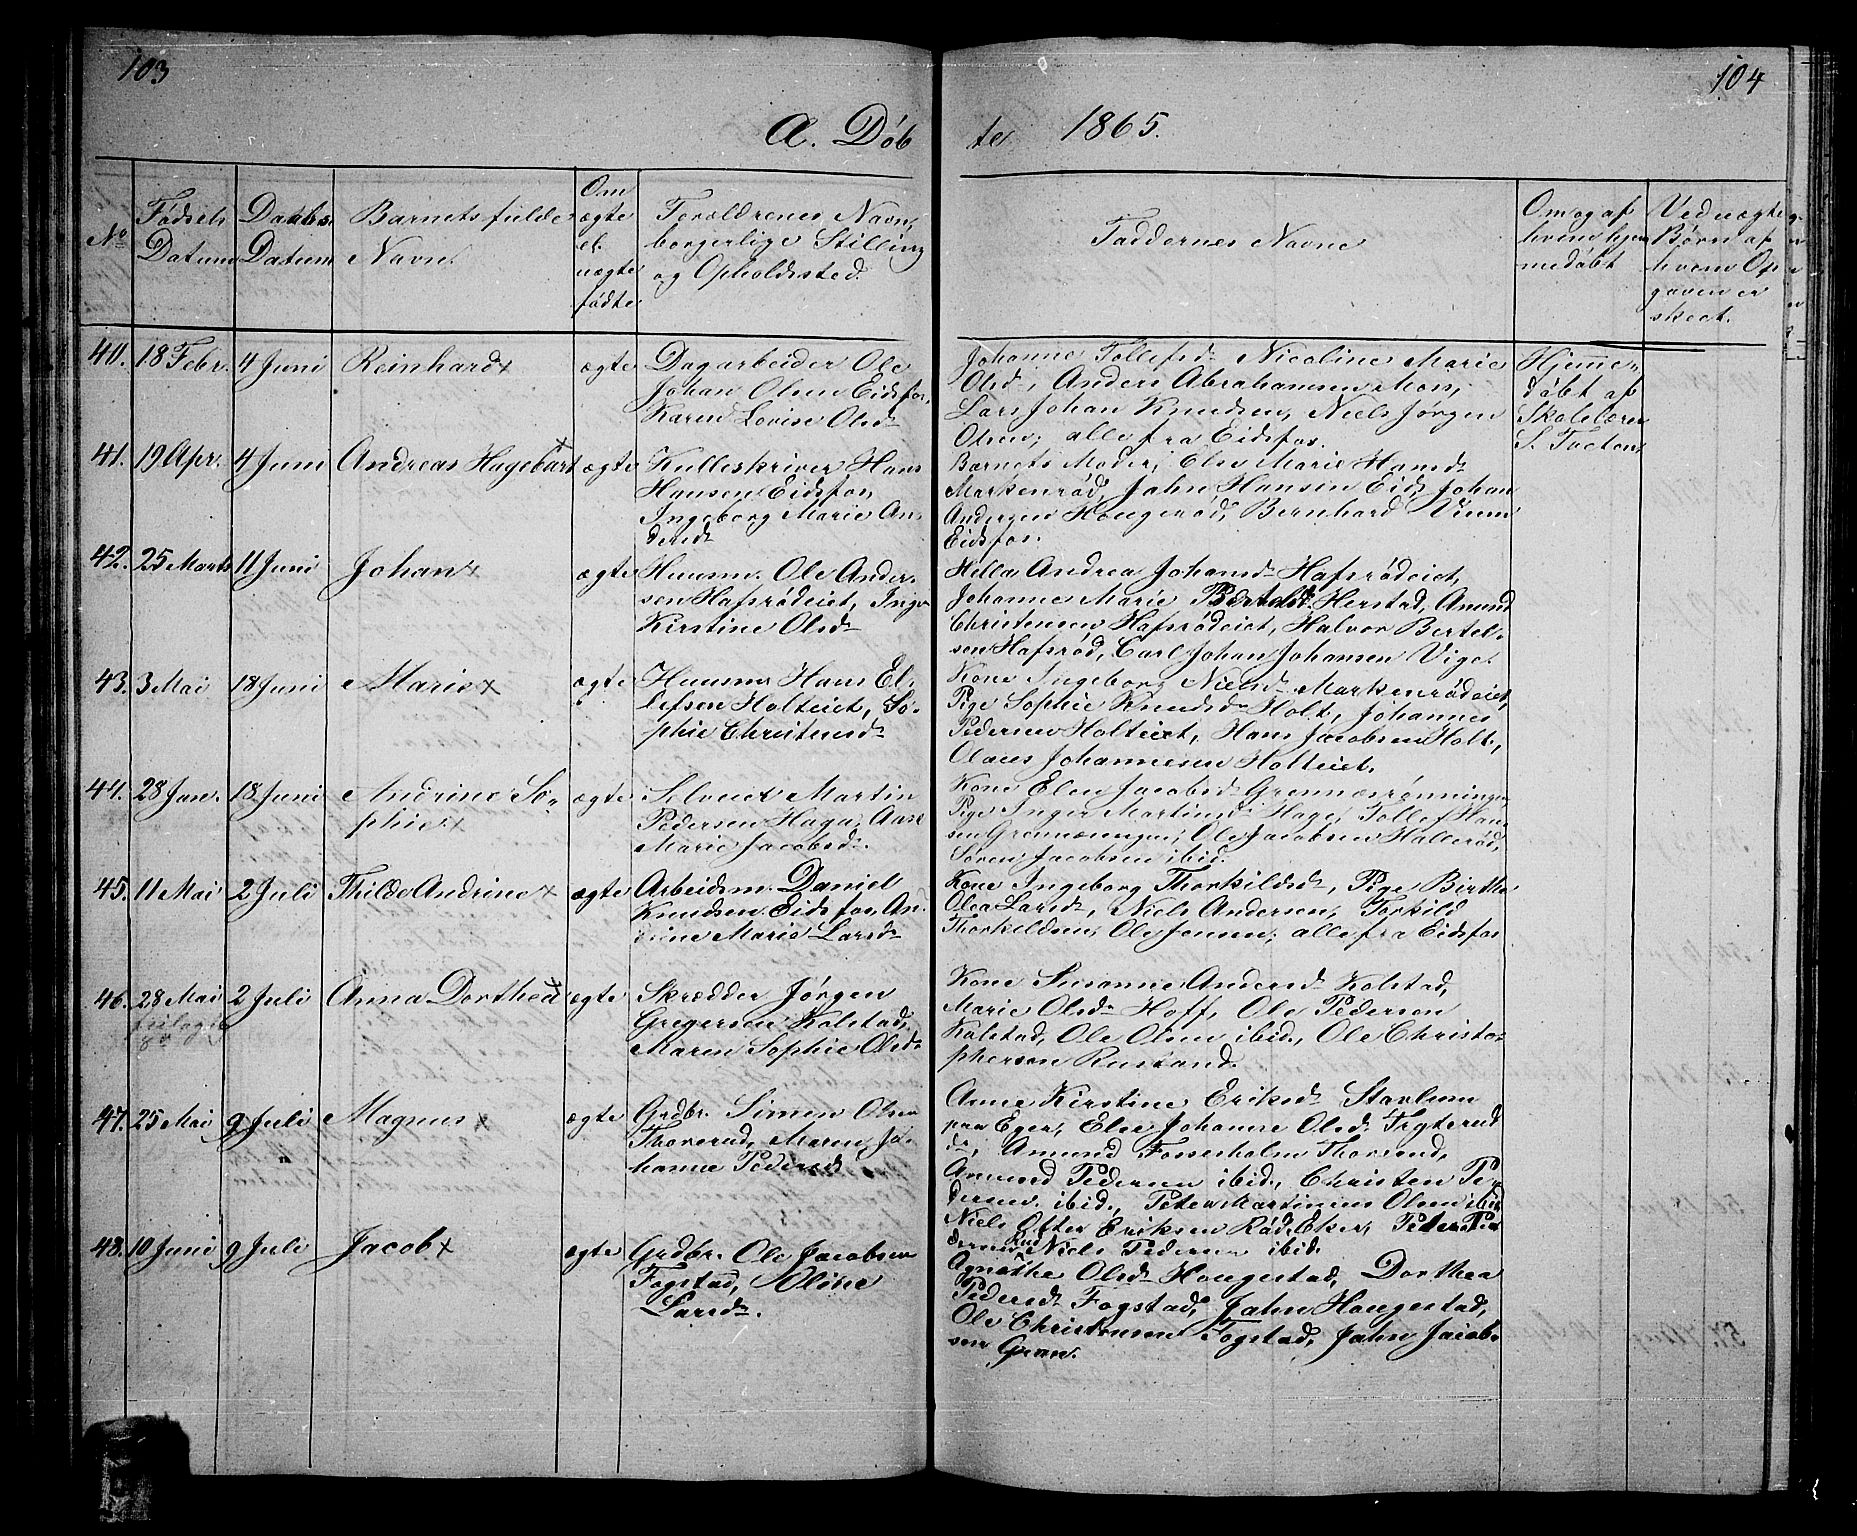 103
104
A. Døb
te 1865.
No
Fødsels
Datum
Daabs
Datum
Barnets fulde
Navn.
Om
ægte
el.
uægte
fødte
Forældrenes Navn,
borgerlige Stilling
og Opholdssted.
Faddernes Navne
Om og af
hvem hjem
medøbt
Ved uægte
Børn af
hvem Op
gaven er
skeet.
40. 18 Febr. 4 Juni Reinhard x ægte Dagarbeider Ole
Johan Olsen Eidsfos,
Karen Lovise Olsdr
Johanne Tollefsdr Nicoline Marie
Olsd., Anders Abrahamsen Moen,
Lars Johan Knudsen, Niels Jørgen
Olsen, alle fra Eidsfos.
Hjemme-
døbt af
Skolelærer
S. Tveten
41. 19 Apr. 4 Juni Andreas Hagebart x ægte Kulleskriver Hans
Hansen Eidsfos,
Ingeborg Marie An-
dersdr
Barnets Moder, Else Marie Hansdr
Markenrød, Jahn Hansen Eids, Johan
Andersen Hougerød, Bernhard Vium
Eidsfos.
42. 25 Marts 11 Juni Johan x ægte Huusm. Ole Ander-
sen Hafsrødeiet, Inge
Kirstine Olsdr
Helle Andrea Johansdr Hafsrødeiet,
Johanne Marie Bertelsdr Herstad, Amund
Christensen Hafsrødeiet, Halvor Bertel-
sen Hafsrød, Carl Johan Johansen Vige.
43. 3 Mai 18 Juni Marie x ægte Huusm. Hans El-
lefsen Holteiet, So-
phie Christensdr
Kone Ingeborg Nielsdr Markenrødeiet,
Pige Sophie Knudsdr Holt, Johannes
Pedersen Holteiet, Hans Jacobsen Holt,
Olaus Johannesen Holteiet.
44. 28 Jan. 18 Juni Andrine So-
phie x ægte Selveier Martin
Pedersen Haga, Anne
Marie Jacobsdr.
Kone Elen Jacobsdr Grennesrønningen
Pige Inger Martinsdr Hage, Tollef Han-
sen Grennæningen, Ole Jacobsen Hallerød,
Søren Jacobsen ibid.
45. 11 Mai 2 Juli Thilde Andrine x ægte Arbeidsm. Daniel
Knudsen Eidsfos, An-
drine Marie Larsdr
Kone Ingeborg Thorkildsdr, Pige Birthe
Olea Larsdr, Niels Andersen, Torkild
Thorkildsen, Ole Jensen, alle fra Eidsfos
46. 28 Mai 2 Juli Anna Dorthea x ægte Skrædder Jørgen
Gregersen Kolstad,
Maren Sophie Olsdr
Kone Susanne Andersdr Kolstad,
Marie Olsdr Hoff, Ole Pedersen
Kolstad, Ole Olsen ibid., Ole Christo-
phersen Rustand.
47. 25 Mai 9 Juli Magnus x ægte Grdbr. Simen Olsen
Thorerud, Maren Jo-
hanne Pedersdr
Anne Kirstine Eriksdr Stavlum
paa Eger, Else Johanne Olsdr Frygterud
dr, Amund Fosserholm Thorerud,
Amund Pedersen ibid., Christen Pe-
dersen ibid., Peter Martinius Olsen ibid
Niels Otter Eriksen Rød Eker, Peder Pe
dersen Niels Pedersen ibid.
48. 10 Juni 9 Juli Jacob x ægte Grdbr. Ole Jacobsen
Fogstad, Oline
Larsdr.
Agnethe Olsdr Hougestad, Dorthea
Pedersdr Fogstad, Jahn Hougestad,
Ole Christensen Fogstad, Jahn Jacob-
sen Gran.